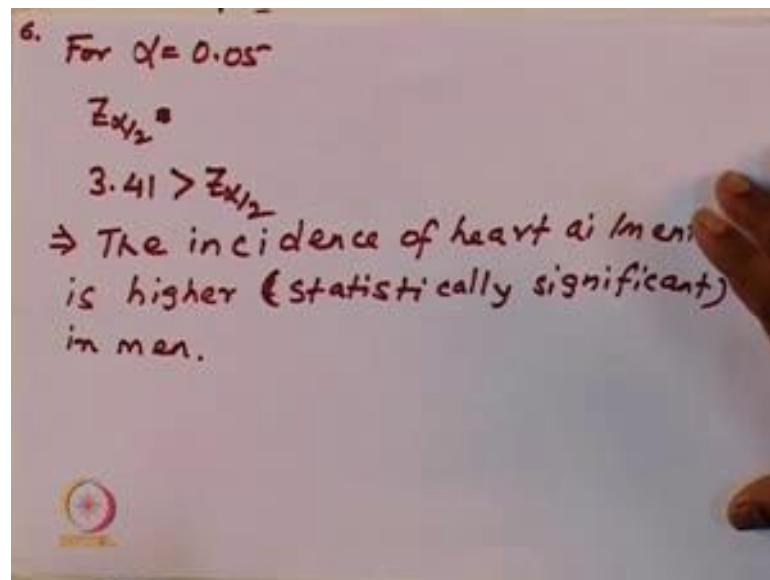 6.
For α = 0.05
Zα/2 =
3.41 > Zα/2
⇒ The incidence of heart ailmen
is higher (statistically significant)
in men.